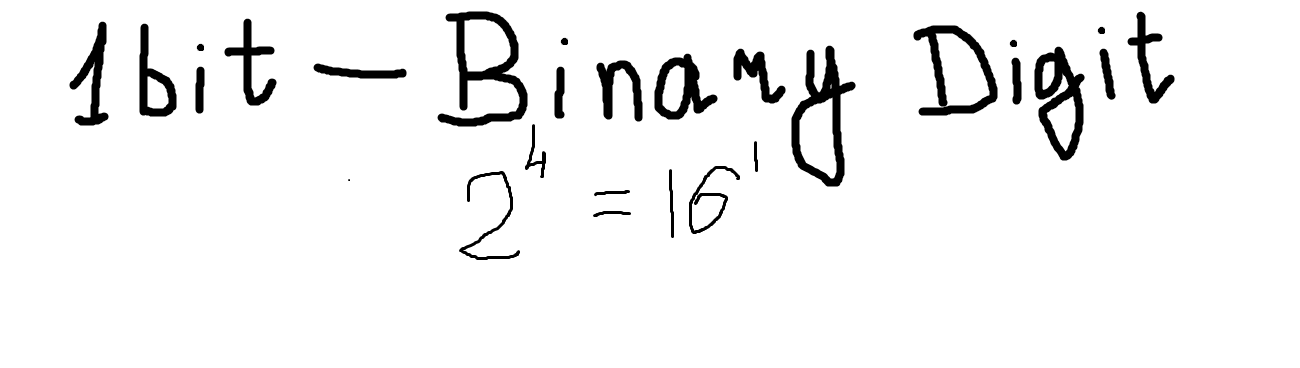 1bit — Binary Digit
2⁴ = 16¹